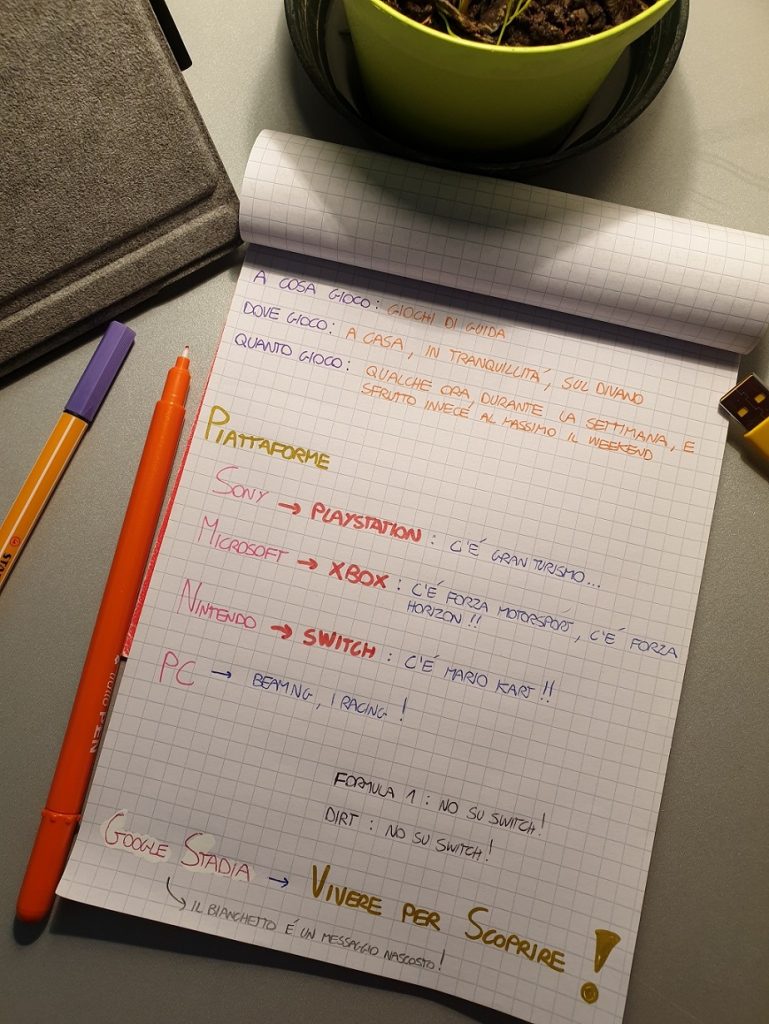 A COSA GIOCO: GIOCHI DI GUIDA
DOVE GIOCO: A CASA, IN TRANQUILLITÁ, SUL DIVANO
QUANTO GIOCO: QUALCHE ORA, DURANTE LA SETTIMANA, E
SFRUTTO INVECE AL MASSIMO IL WEEKEND
PIATTAFORME
SONY → PLAYSTATION: C'É GRAN TURISMO...
MICROSOFT → XBOX: C'É FORZA MOTORSPORT, C'É FORZA
HORIZON!!
NINTENDO → SWITCH: C'É MARIO KART!!
PC → BEAMNG, IRACING!
FORMULA 1: NO SU SWITCH!
DIRT: NO SU SWITCH!
GOOGLE STADIA → VIVERE PER SCOPRIRE!
IL BIANCHETTO É UN MESSAGGIO NASCOSTO!
PEN